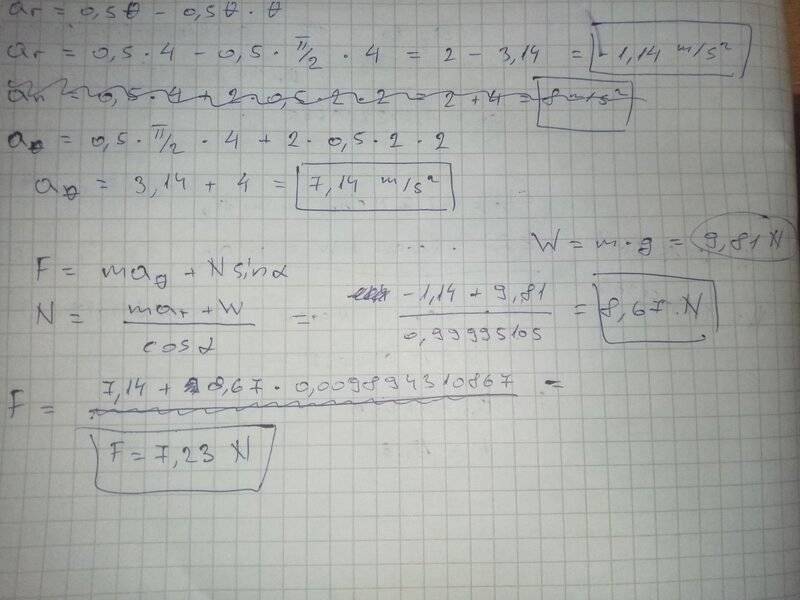 ar = 0,5θ - 0,5θ · θ
ar = 0,5 · 4 - 0,5 · π/2 · 4 = 2 - 3,14 = -1,14 m/s²
an = 0,5 · 4 + 2 · 0,5 · 2 · 2 = 2 + 4 = 8 m/s²
aθ = 0,5 · π/2 · 4 + 2 · 0,5 · 2 · 2
aθ = 3,14 + 4 = 7,14 m/s²
W = m · g = 9,81 N
F = maθ + N sinα
N = mar + W / cosα = -1,14 + 9,81 / 0,99995105 = 8,67 N
F = 7,14 + 8,67 · 0,009894310867 =
F = 7,23 N